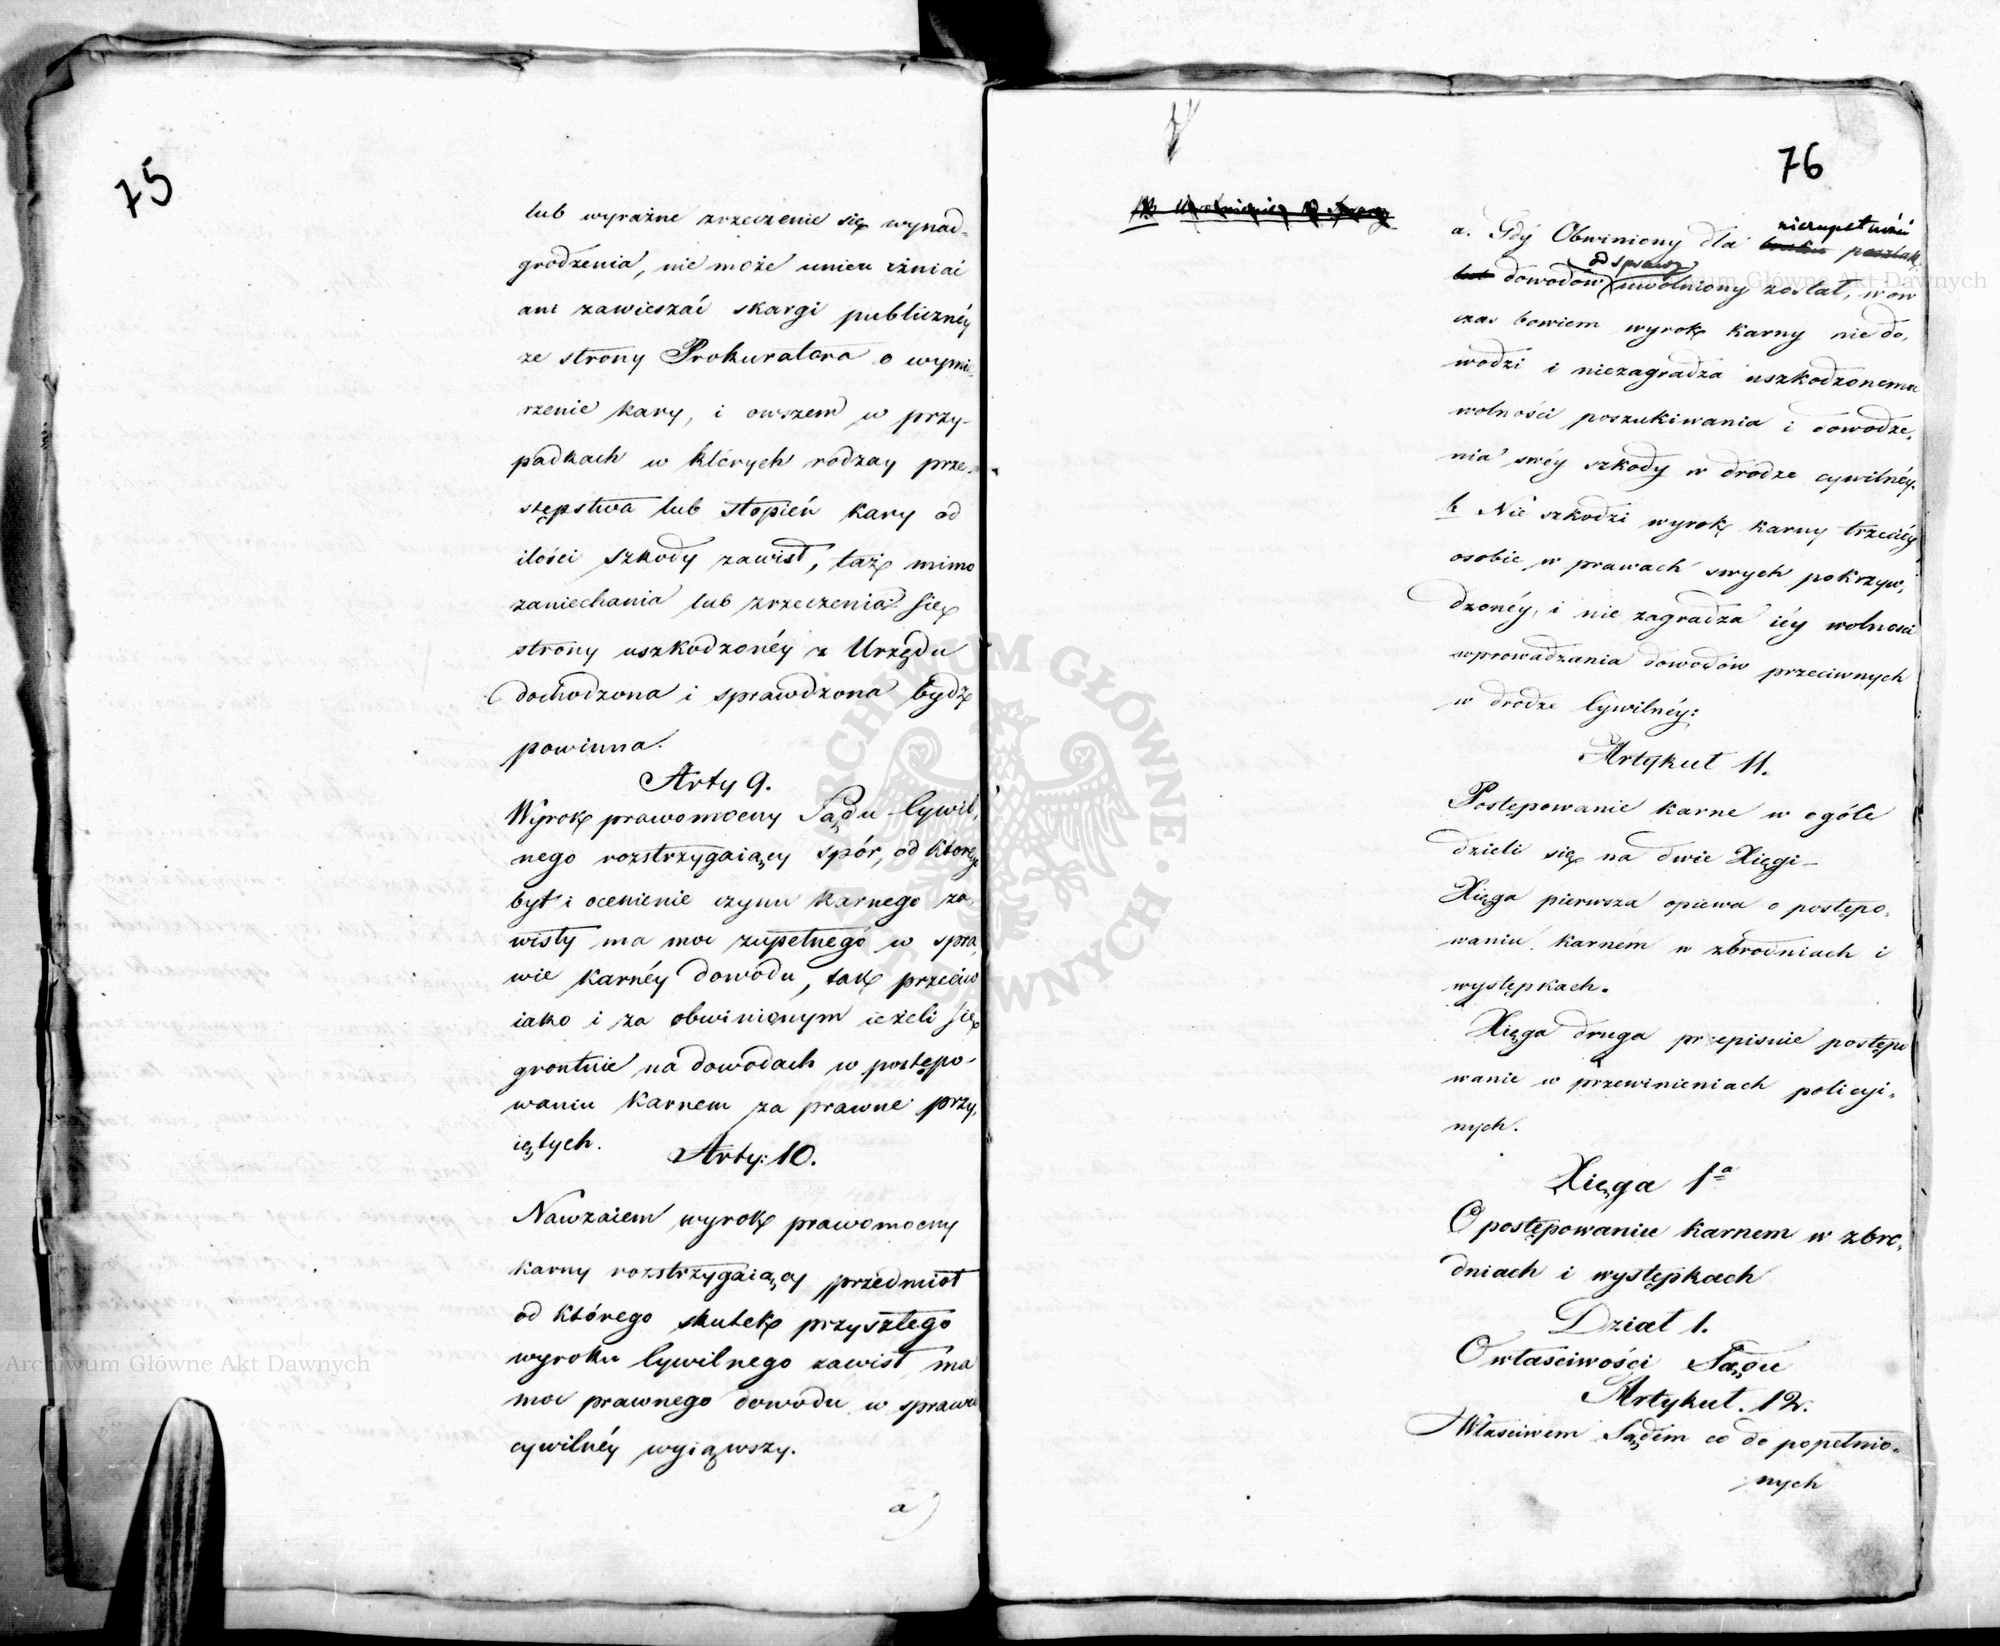 75
lub wyraźne zrzeczenie się wynad-
grodzenia, nie może unieważniać
ani zawieszać skargi publicznéy
ze strony Prokuratora o wymie-
rzenie kary, i owszem w przy-
padkach w których rodzay prze-
stępstwa lub stopień kary od
ilości szkody zawisł, taż mimo
zaniechania lub zrzeczenia się
strony uszkodzonéy z Urzędu
dochodzona i sprawdzona bydź
powinna.
Arty 9.
Wyrok prawomocny Sądu Cywil-
nego rozstrzygaiący spór, od którego
byt i ocenienie czynu karnego za-
wisły ma moc zupełnego w spra-
wie karnéy dowodu, tak przeciw
iako i za obwinionym ieżeli się
grontuie na dowodach w postępo-
waniu karnem za prawne przy-
iętych.
Arty: 10.
Nawzaiem wyrok prawomocny
karny rozstrzygaiący przedmiot
od którego skutek przyszłego
wyroku Cywilnego zawisł ma
moc prawnego dowodu w sprawie
cywilnéy wyiąwszy.
a)
76
a. Gdy Obwiniony dla niezupełności poszlak
dowodów od sprawy uwolniony został, wów
czas bowiem wyrok karny nie do-
wodzi i niezagradza uszkodzonemu
wolności poszukiwania i dowodze-
nia swéy szkody w drodze cywilnéy.
b Nie szkodzi wyrok karny trzeciéy
osobie w prawach swych pokrzyw-
dzonéy, i nie zagradza iéy wolności
wprowadzania dowodów przeciwnych
w drodze Cywilnéy:
Artykuł 11.
Postępowanie karne w ogóle
dzieli się na dwie Xięgi –
Xięga pierwsza opiewa o postępo-
waniu karném w zbrodniach i
występkach.
Xięga druga przepisuie postępo
wanie w przewinieniach policyi-
nych.
Xięga 1a
O postępowaniu karnem w zbro-
dniach i występkach
Dział 1.
O właściwości Sądu
Artykuł. 12.
Właściwem Sądem co do popełnio-
nych
ARCHIWUM GŁÓWNE AKT DAWNYCH
Archiwum Główne Akt Dawnych
Archiwum Główne Akt Dawnych